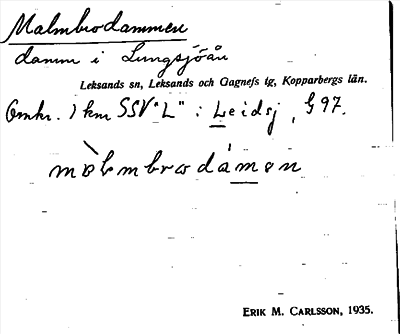 Malmbrodammen
damm i Lungsjöån
Leksands sn, Leksands och Gagnefs tg, Kopparbergs län.
Omkr. 1 km SSV "L" i Leidsj, G 97.
damən
ERIK M. CARLSSON, 1935.